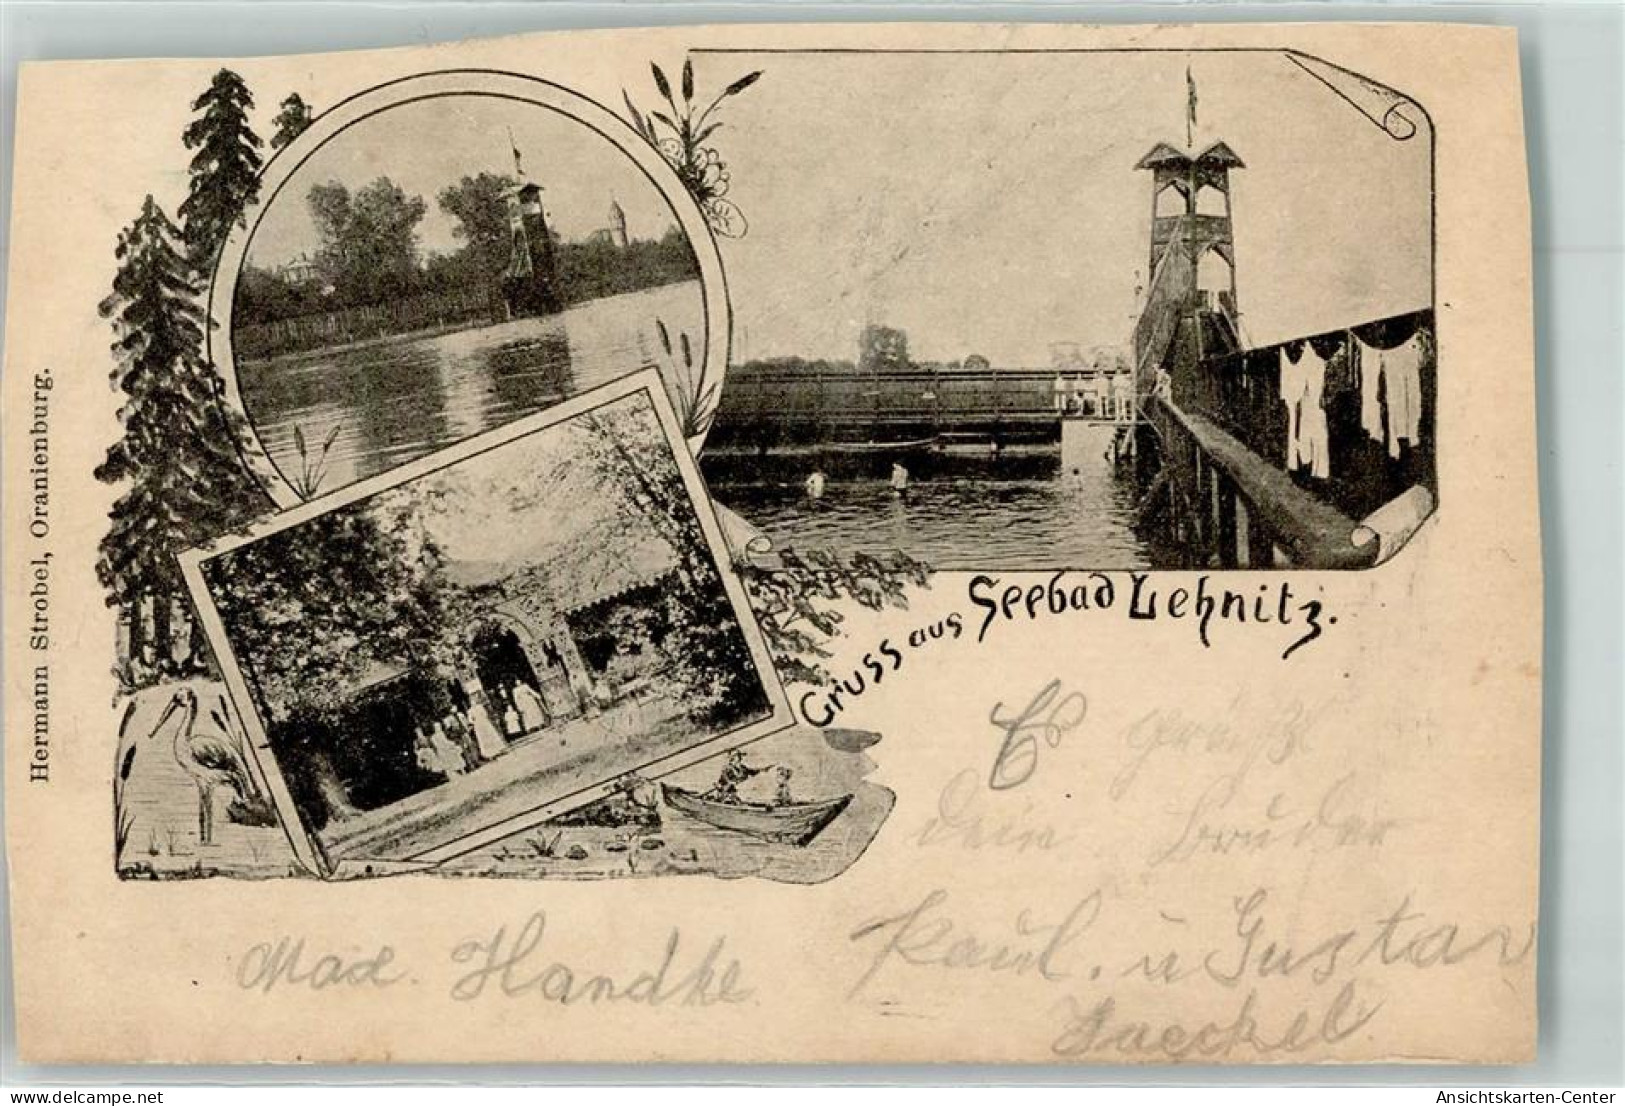 Hermann Strobel, Oranienburg.
Gruss aus Seebad Lehnitz.
Es grüßt
dein Bruder
Paul. u Gustav
Haeckel
Max. Handke
delcampe.net
Ansichtskarten-Center